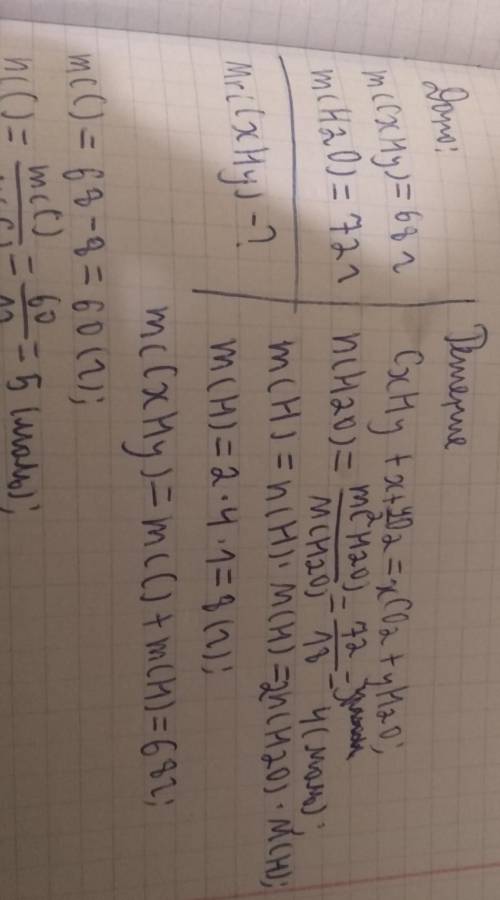 Дано:
m(CxHy) = 68 г
m(H2O) = 72 г
Mr(CxHy) - ?
Решение
CxHy + x+yO2 = xCO2 + yH2O;
n(H2O) = m(H2O) / M(H2O) = 72 / 18 = 4 (моль);
m(H) = n(H) · M(H) = 2n(H2O) · M(H);
m(H) = 2 · 4 · 1 = 8 (г);
m(CxHy) = m(C) + m(H) = 68 г;
m(C) = 68 - 8 = 60 (г);
n(C) = m(C) / M(C) = 60 / 12 = 5 (моль);